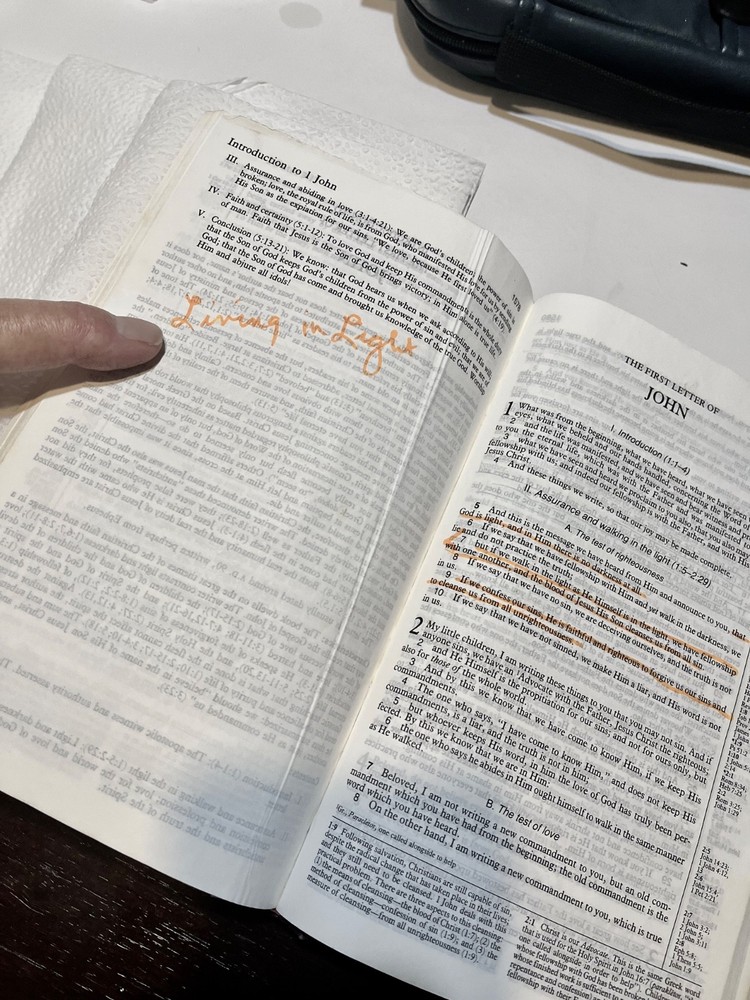 Introduction to 1 John
1578
III. Assurance and abiding in love (3:1-4:21): We are God's children; the power of sin
broken; love, the royal rule of life, is from God, who manifested His love for us by sending
His Son as the expiation for our sins. "We love, because He first loved us" (4:19).
IV. Faith and certainty (5:1-12): To love God and keep His commandments is the whole duty
of man. Faith that Jesus is the Son of God brings victory; in Him alone is true life.
V. Conclusion (5:13-21): We know: that God hears us when we ask according to His will;
that the Son of God keeps God's children from the power of sin and evil; that we are of
God; that the Son of God has come and brought us knowledge of the true God. Worship
Him and abjure all idols!
Living in Light
THE FIRST LETTER OF
JOHN
I. Introduction (1:1-4)
1 What was from the beginning, what we have heard, what we have seen
eyes, what we beheld and our hands handled, concerning the Word
2 and the life was manifested, and we have seen and bear witness and
to you the eternal life, which was with the Father and was manifested
3 what we have seen and heard we proclaim to you also, that you may
fellowship with us; and indeed our fellowship is with the Father, and with His
Jesus Christ.
4 And these things we write, so that our joy may be made complete.
II. Assurance and walking in the light (1:5-2:29)
A. The test of righteousness
5 And this is the message we have heard from Him and announce to you, that
God is light, and in Him there is no darkness at all.
6 If we say that we have fellowship with Him and yet walk in the darkness, we
lie and do not practice the truth;
7 but if we walk in the light as He Himself is in the light, we have fellowship
with one another, and the blood of Jesus His Son cleanses us from all sin.
8 If we say that we have no sin, we are deceiving ourselves, and the truth is not
in us.
9 If we confess our sins, He is faithful and righteous to forgive us our sins and
to cleanse us from all unrighteousness.
10 If we say that we have not sinned, we make Him a liar, and His word is not
in us.
2 My little children, I am writing these things to you that you may not sin. And if
anyone sins, we have an Advocate with the Father, Jesus Christ the righteous;
2 and He Himself is the propitiation for our sins; and not for ours only, but
also for those of the whole world.
3 And by this we know that we have come to know Him, if we keep His
commandments.
4 The one who says, "I have come to know Him," and does not keep His
commandments, is a liar, and the truth is not in him;
5 but whoever keeps His word, in him the love of God has truly been per-
fected. By this we know that we are in Him:
6 the one who says he abides in Him ought himself to walk in the same manner
as He walked.
B. The test of love
7 Beloved, I am not writing a new commandment to you, but an old com-
mandment which you have had from the beginning; the old commandment is the
word which you have heard.
8 On the other hand, I am writing a new commandment to you, which is true
1Gr., Paracletos, one called alongside to help
1:9 Following salvation, Christians are still capable of sin,
despite the radical change that has taken place in their lives,
and they still need to be cleansed. 1 John deals with this
practical problem. There are three aspects to this cleansing:
(1) the means of cleansing—the blood of Christ (1:7); (2) the
method of cleansing—confession of sin (1:9); and (3) the
measure of cleansing—from all unrighteousness (1:9).
2:1 Christ is our Advocate. This is the same Greek word
that is used for the Holy Spirit in John 16:7 (parakletos
one called alongside in order to help
whose fellowship with God has been
whose finished work is sufficient
repentance and confession
fellowship with
2:5
John 14:23;
1 John 4:12
2:6
John 15:4;
1 Pet 2:21
2:7
1 John 3:2;
2 John 5;
1 John 3:11
2:8
Eph 5:8;
1 Thess 5:5;
John 1:9